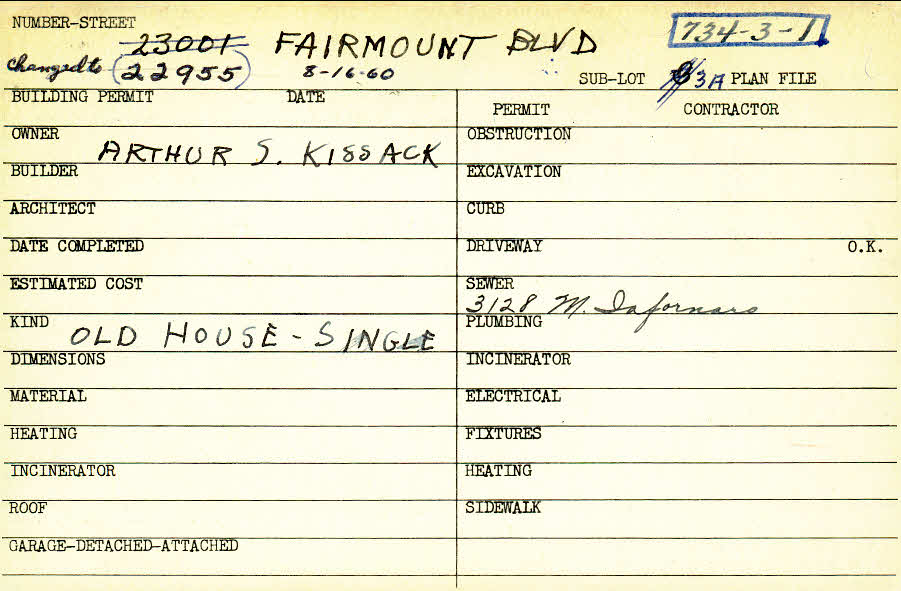 NUMBER-STREET 23001 FAIRMOUNT BLVD 734-3-1
Changed to 22955 8-16-60 SUB-LOT 3A PLAN FILE
BUILDING PERMIT DATE
PERMIT CONTRACTOR
OWNER ARTHUR S. KISSACK
BUILDER
ARCHITECT
DATE COMPLETED
ESTIMATED COST
KIND OLD HOUSE - SINGLE
DIMENSIONS
MATERIAL
HEATING
INCINERATOR
ROOF
GARAGE-DETACHED-ATTACHED
OBSTRUCTION
EXCAVATION
CURB
DRIVEWAY O.K.
SEWER
3128 M.
PLUMBING
INCINERATOR
ELECTRICAL
FIXTURES
HEATING
SIDEWALK